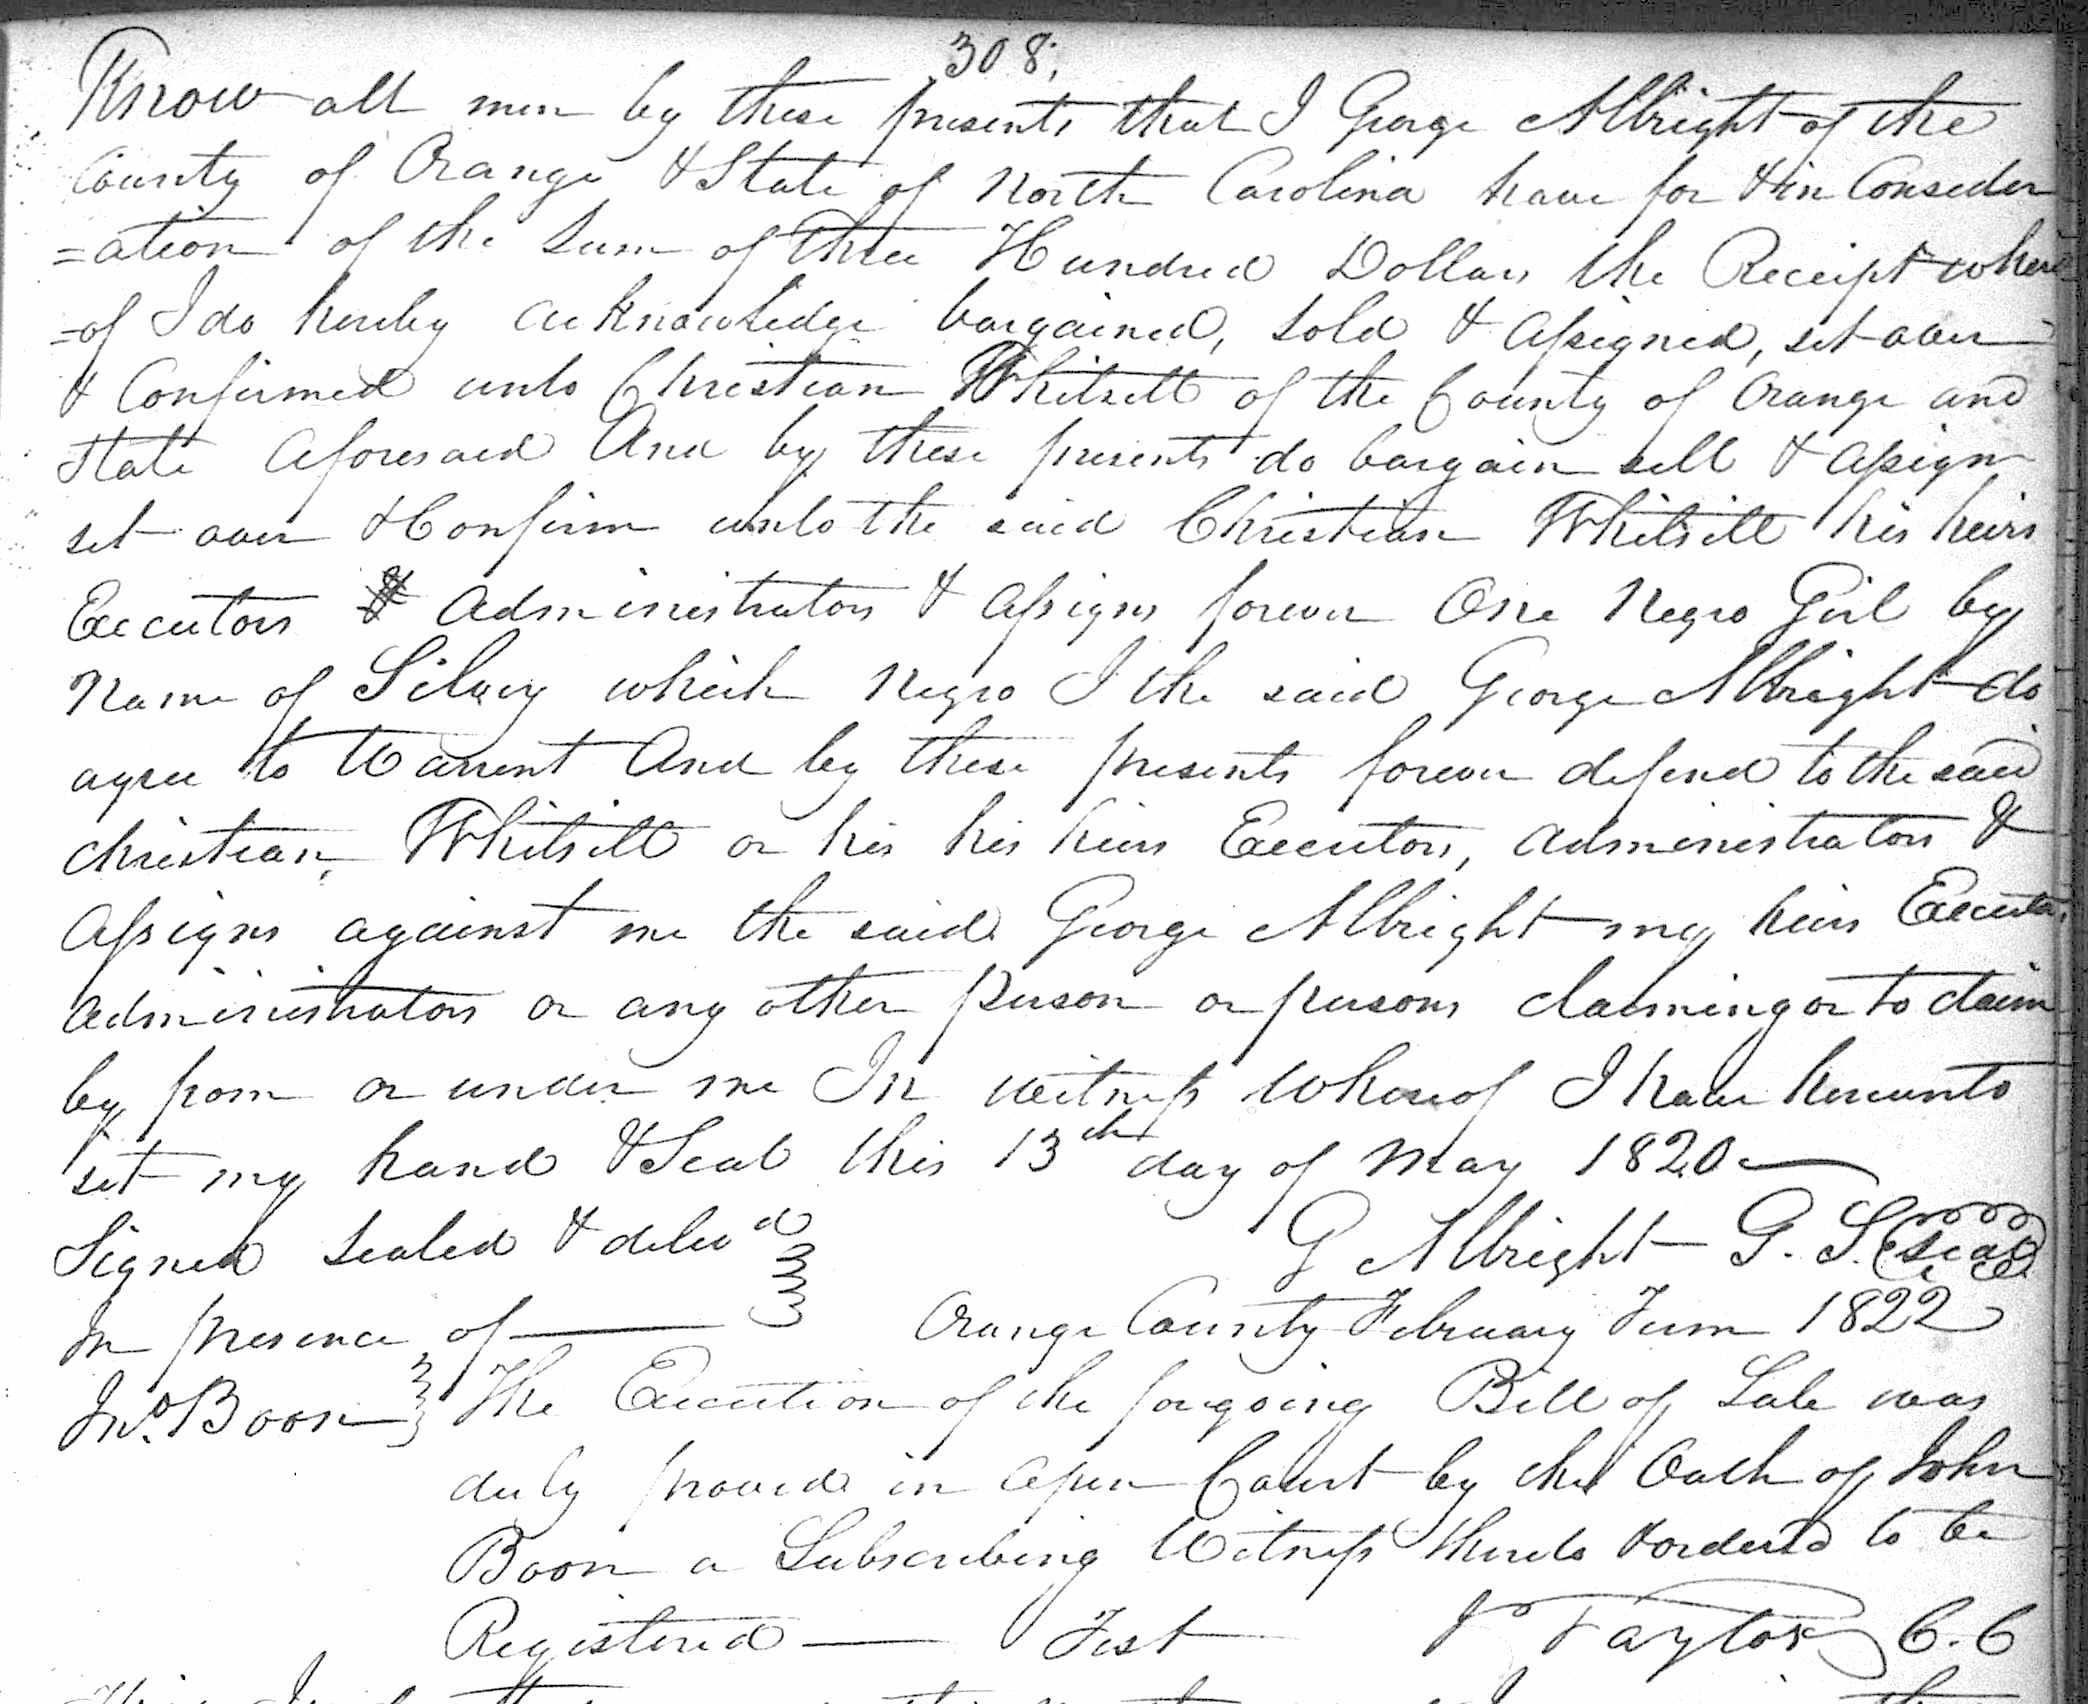 308,
Know all men by these presents that I George Albright of the
County of Orange & State of North Carolina have for & in Consider
=ation of the Sum of three Hundred Dollars the Receipt where
=of I do hereby acknowledge bargained, sold & assigned, set over
& Confirmed unto Christian Whitsett of the County of Orange and
State aforesaid And by these presents do bargain sell & assign
set over & Confirm unto the said Christian Whitsett his heirs
Executors & administrators & assigns forever One Negro Girl by
Name of Silvey which Negro I the said George Albright do
agree to Warrent And by these presents forever defend to the said
christian, Whitsett or his his heirs Executors, administrators &
assigns against me the said George Albright my heirs Executors
administrators or any other person or persons claiming or to claim
by from or under me In witness whereof I have hereunto
set my hand & Seal this 13th day of May 1820
Signed sealed & deliv d G Albright G. S. (Seal)
In presence of Orange County February Term 1822
Jno. Boon The Execution of the forgoing Bill of Sale was
duly proved in open Court by the Oath of John
Boon a Subscribing Witness thereto & ordered to be
Registered Test J Taylor C.C